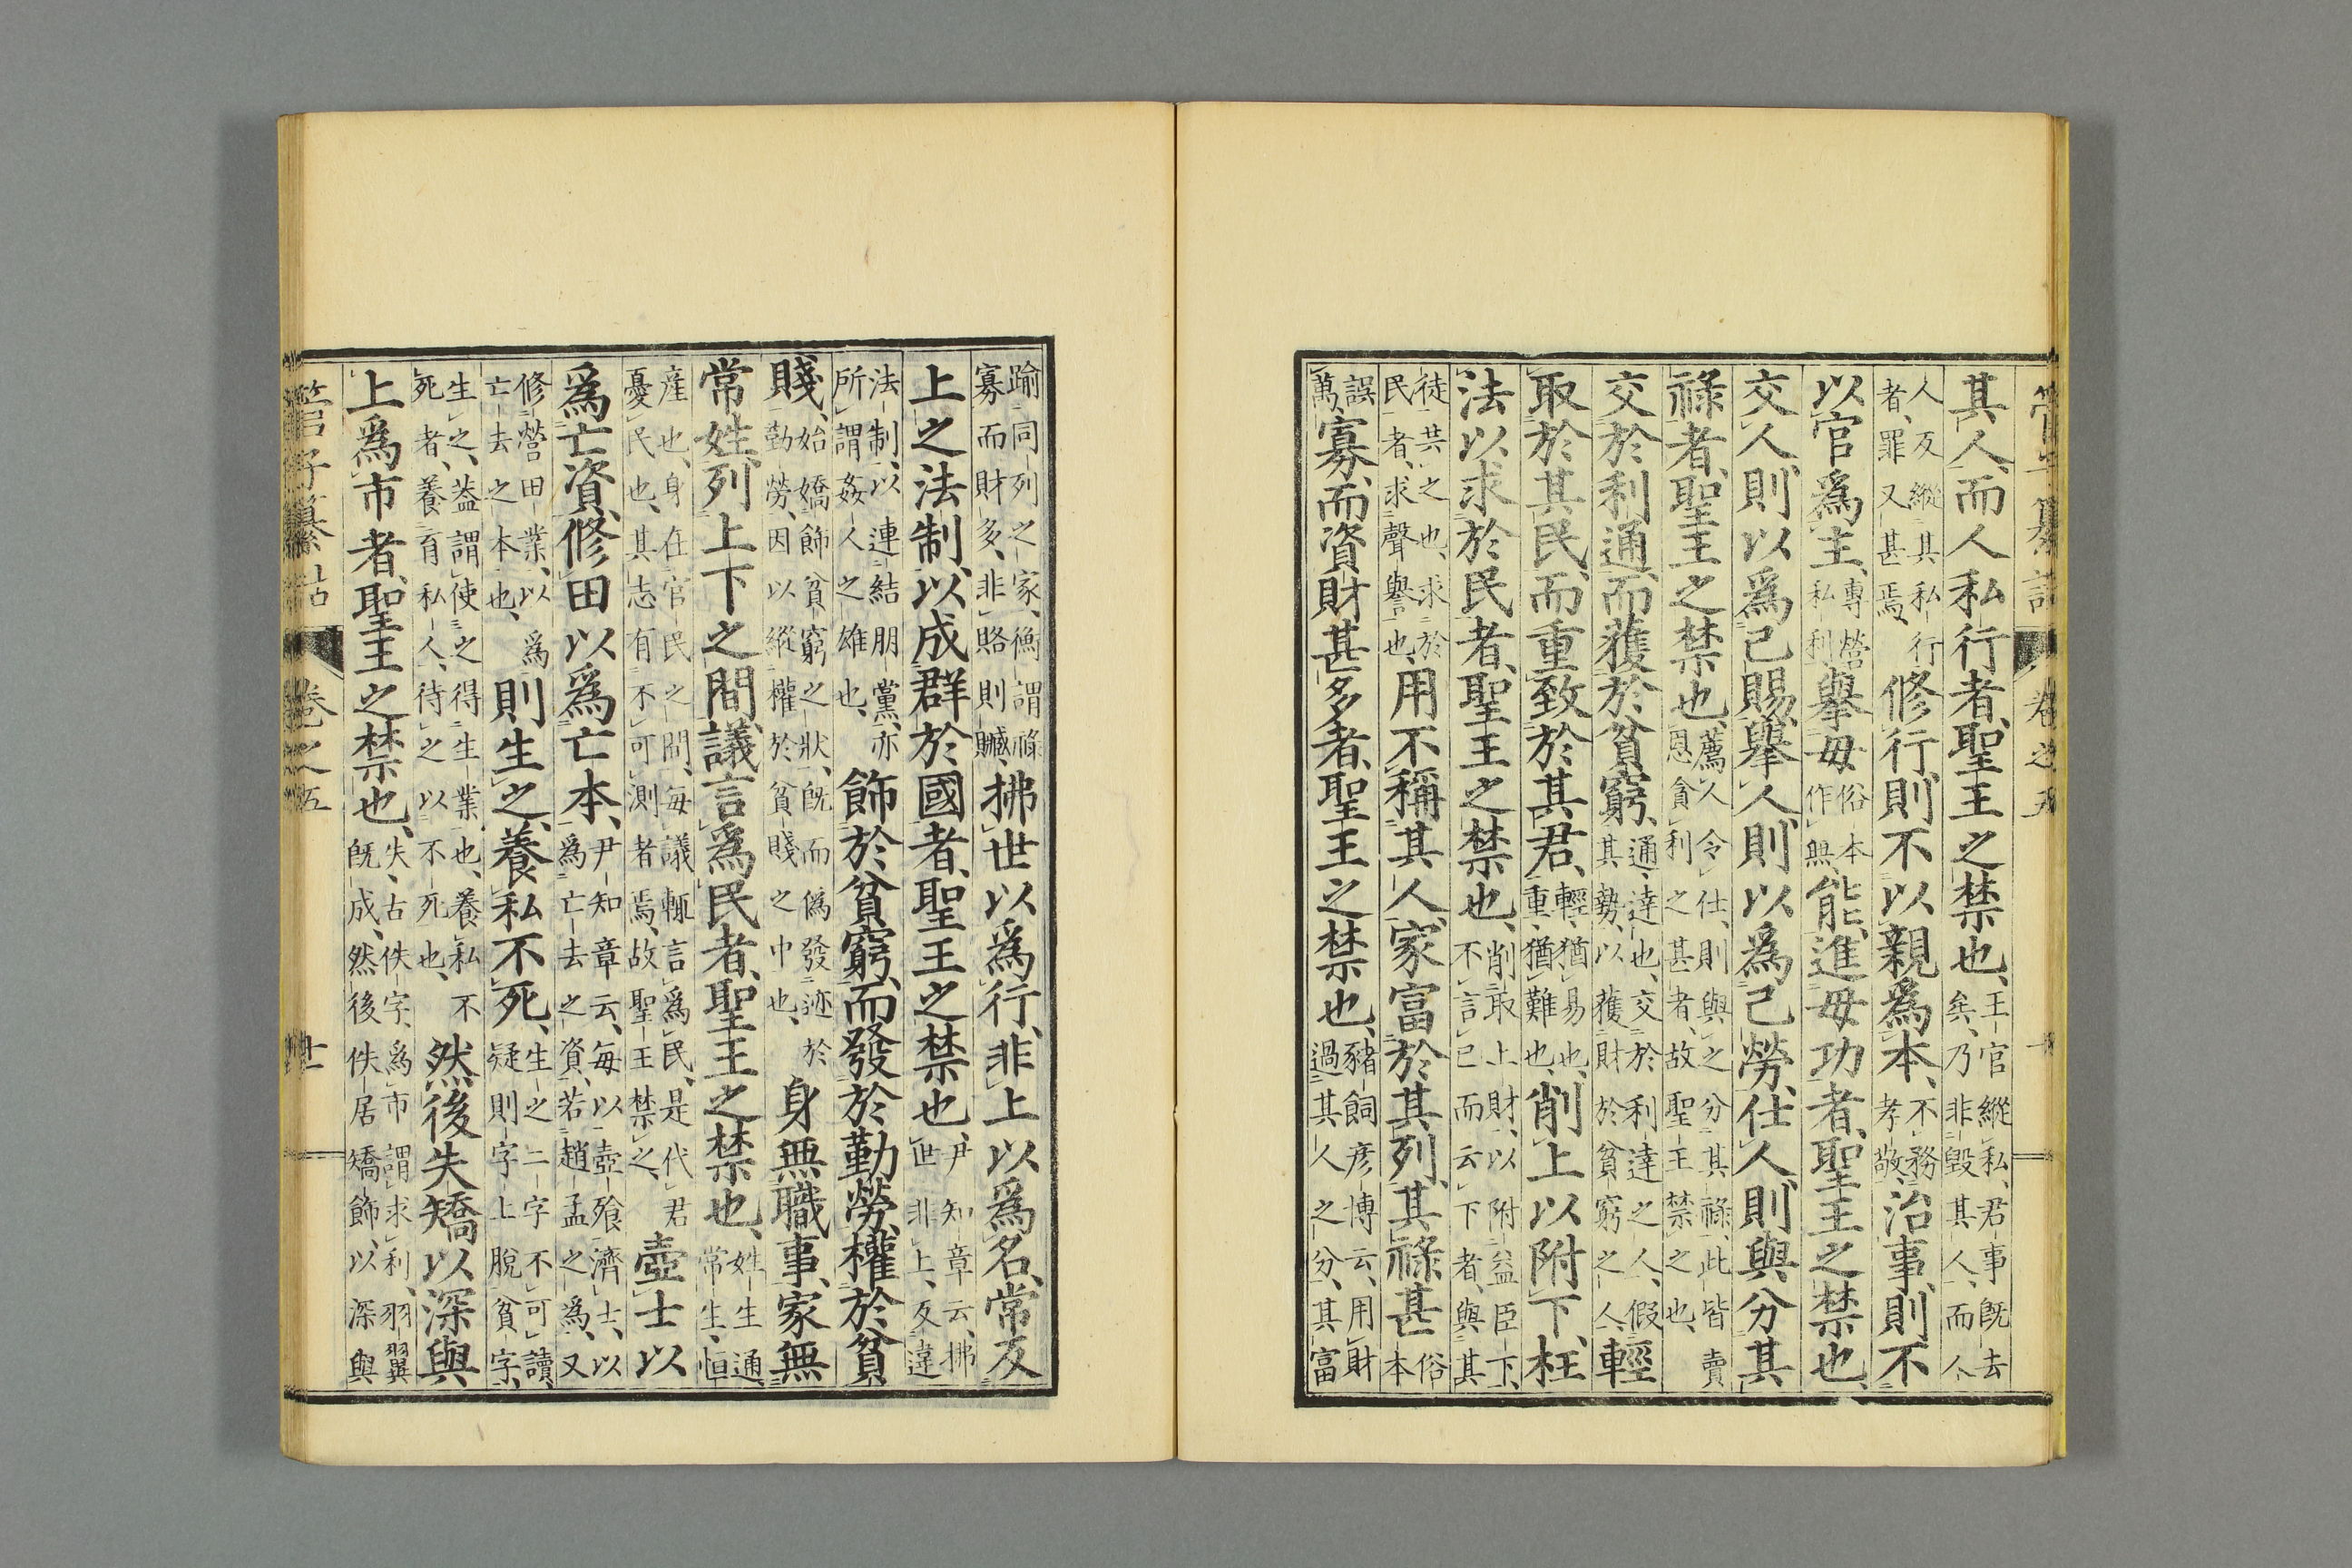 管子纂詁 卷之五
其人、而人私行者、聖王之禁也、王官縱私、君事既去
矣、乃非毀其人、而人
人反縱其私行
者、罪又甚焉、修行則不以親爲本、不務
孝敬、治事則不
以官爲主、專營
私利擧毋俗本
作無能、進毋功者、聖王之禁也、
交人則以爲己賜、擧人則以爲己勞、仕人則與分其
祿者、聖王之禁也、薦人令仕、則與之分其祿、此皆賣
恩貪利之甚者、故聖王禁之也、
交於利通、而獲於貧窮、通、達也、交於利達之人、假
其勢、以獲財於貧窮之人、輕
取於其民、而重致於其君、輕、猶易也、
重、猶難也、削上以附下、枉
法以求於民者、聖王之禁也、削取上財、以附益臣下、
不言己而云下者、與其
徒共之也、求於
民者、求聲譽也、用不稱其人、家富於其列、其祿甚俗
本
誤
萬寡、而資財甚多者、聖王之禁也、豬飼彥博云、用財
過其人之分、其富
踰同列之家、衡謂祿
寡而財多、非賂則贓、拂世以爲行、非上以爲名、常反
上之法制、以成群於國者、聖王之禁也、尹知章云、拂
世非上、反違
法制、以連結朋黨、亦
所謂姦人之雄也、飾於貧窮、而發於勤勞、權於貧
賤、始嬌飾貧窮之狀、既而僞發迹於
勤勞、因以縱權於貧賤之中也、身無職事、家無
常姓、列上下之間、議言爲民者、聖王之禁也、姓生通
常生、恒
產也、身在官民之間、每議輒言爲民、是代君
憂民也、其志有不可測者焉、故聖王禁之、壺士以
爲亡資、修田以爲亡本、尹知章云、每以壺飱濟士、以
爲亡去之資、若趙孟之爲、又
修營田業、以爲
亡去之本也、則生之、養私不死、生之二字不可讀、
疑則字上脫貧字、
生之、蓋謂使之得生業也、養私不
死者、養育私人、待之以不死也、然後失矯以深與
上爲市者、聖王之禁也、失、古佚字、爲市謂求利、羽翼
既成、然後佚居矯飾、以深與
管子纂詁 卷之五